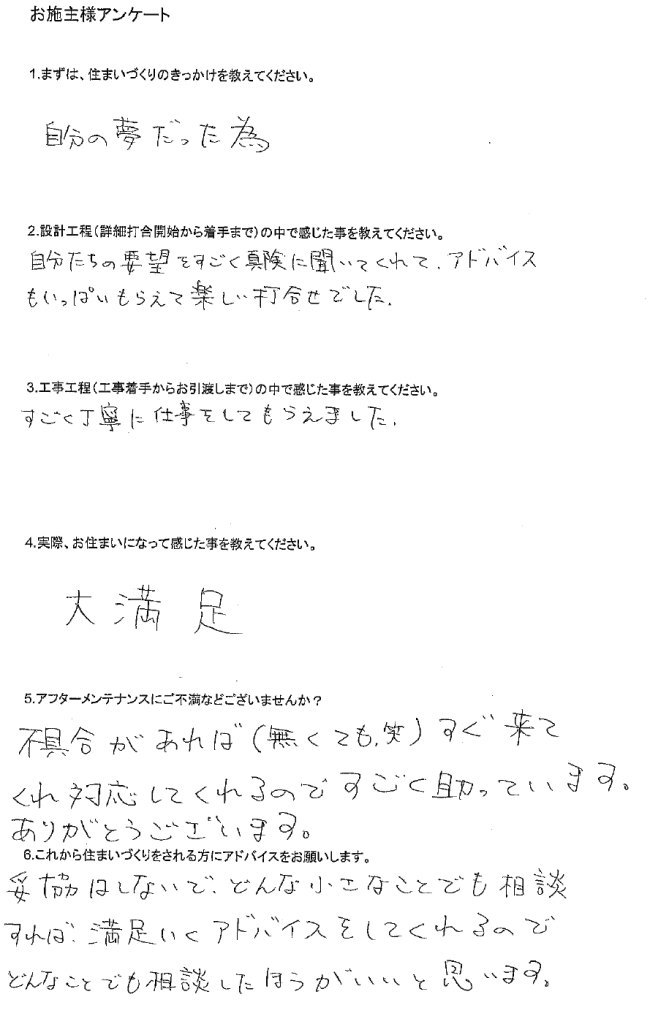 お施主様アンケート
1.まずは、住まいづくりのきっかけを教えてください。
自分の夢だった為
2.設計工程(詳細打合開始から着手まで)の中で感じた事を教えてください。
自分たちの要望をすごく真険に聞いてくれて、アドバイス
もいっぱいもらえて楽しい打合せでした.
3.工事工程(工事着手からお引渡しまで)の中で感じた事を教えてください。
すごく丁寧に仕事をしてもらえました.
4.実際、お住まいになって感じた事を教えてください。
大満足
5.アフターメンテナンスにご不満などございませんか?
不具合があれば(無くても.笑)すぐ来て
くれ対応してくれるのですごく助っています。
ありがとうございます。
6.これから住まいづくりをされる方にアドバイスをお願いします。
妥協はしないで、どんな小さなことでも相談
すれば、満足いくアドバイスをしてくれるので
どんなことでも相談したほうがいいと思います。